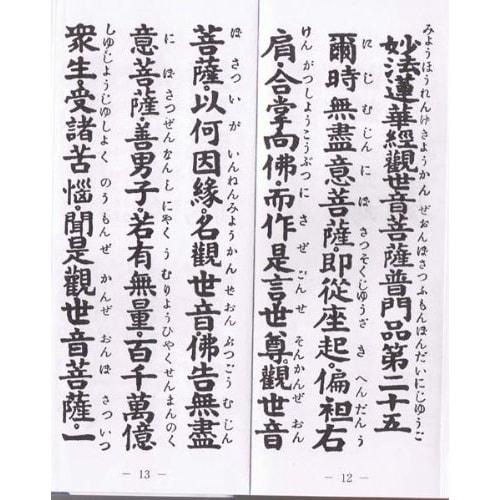 みようほうれんげきようかん ぜおんぼさつふもんぼんだいにじゆうご
妙法蓮華經觀世音菩薩普門品第二十五
に じ む じん に ぼ さつそくじゆうざ き へんだん う
爾時無盡意菩薩。即從座起。偏袒右
けん がつしようこうぶつ に さ ぜ ごん せ そんかんぜ おん
肩合掌向佛。而作是言世尊。觀世音
— 12 —
ぼ さつ い が いんねんみようかん せ おん ぶつごう む じん
菩薩。以何因緣。名觀世音。佛告無盡
に ぼ さつぜんなんし にやく う むりようひやくせんまんのく
意菩薩。善男子。若有無量。百千萬億
しゆじようじゆしよく のうもんぜ かんぜ おんぼ さついつ
衆生。受諸苦惱。聞是觀世音菩薩。一
— 13 —